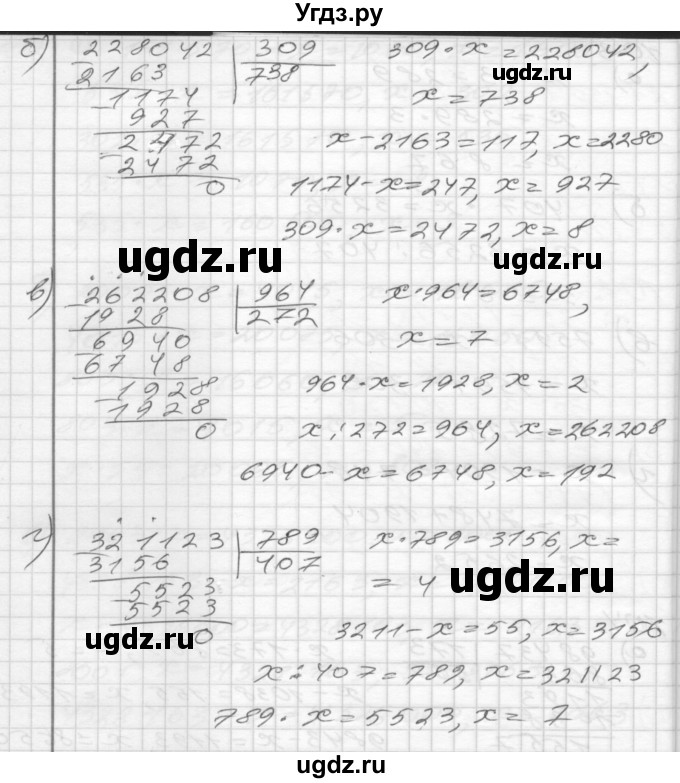 Угдз.ру
б) 228042 | 309
2163 738
1174
927
2472
2472
0
309 · x = 228042,
x = 738
x - 2163 = 117, x = 2280
1174 - x = 247, x = 927
309 · x = 2472, x = 8
ugdz.ru
ugdz.ru
ugdz.ru
в) 262208 | 964
1928 272
6940
6748
1928
1928
0
x · 964 = 6748,
x = 7
964 · x = 1928, x = 2
x : 272 = 964, x = 262208
6940 - x = 6748, x = 192
г) 321123 | 789
3156 407
5523
5523
0
x · 789 = 3156, x =
= 4
ugdz.ru
ugdz.ru
3211 - x = 55, x = 3156
x : 407 = 789, x = 321123
789 · x = 5523, x = 7
ugdz.ru